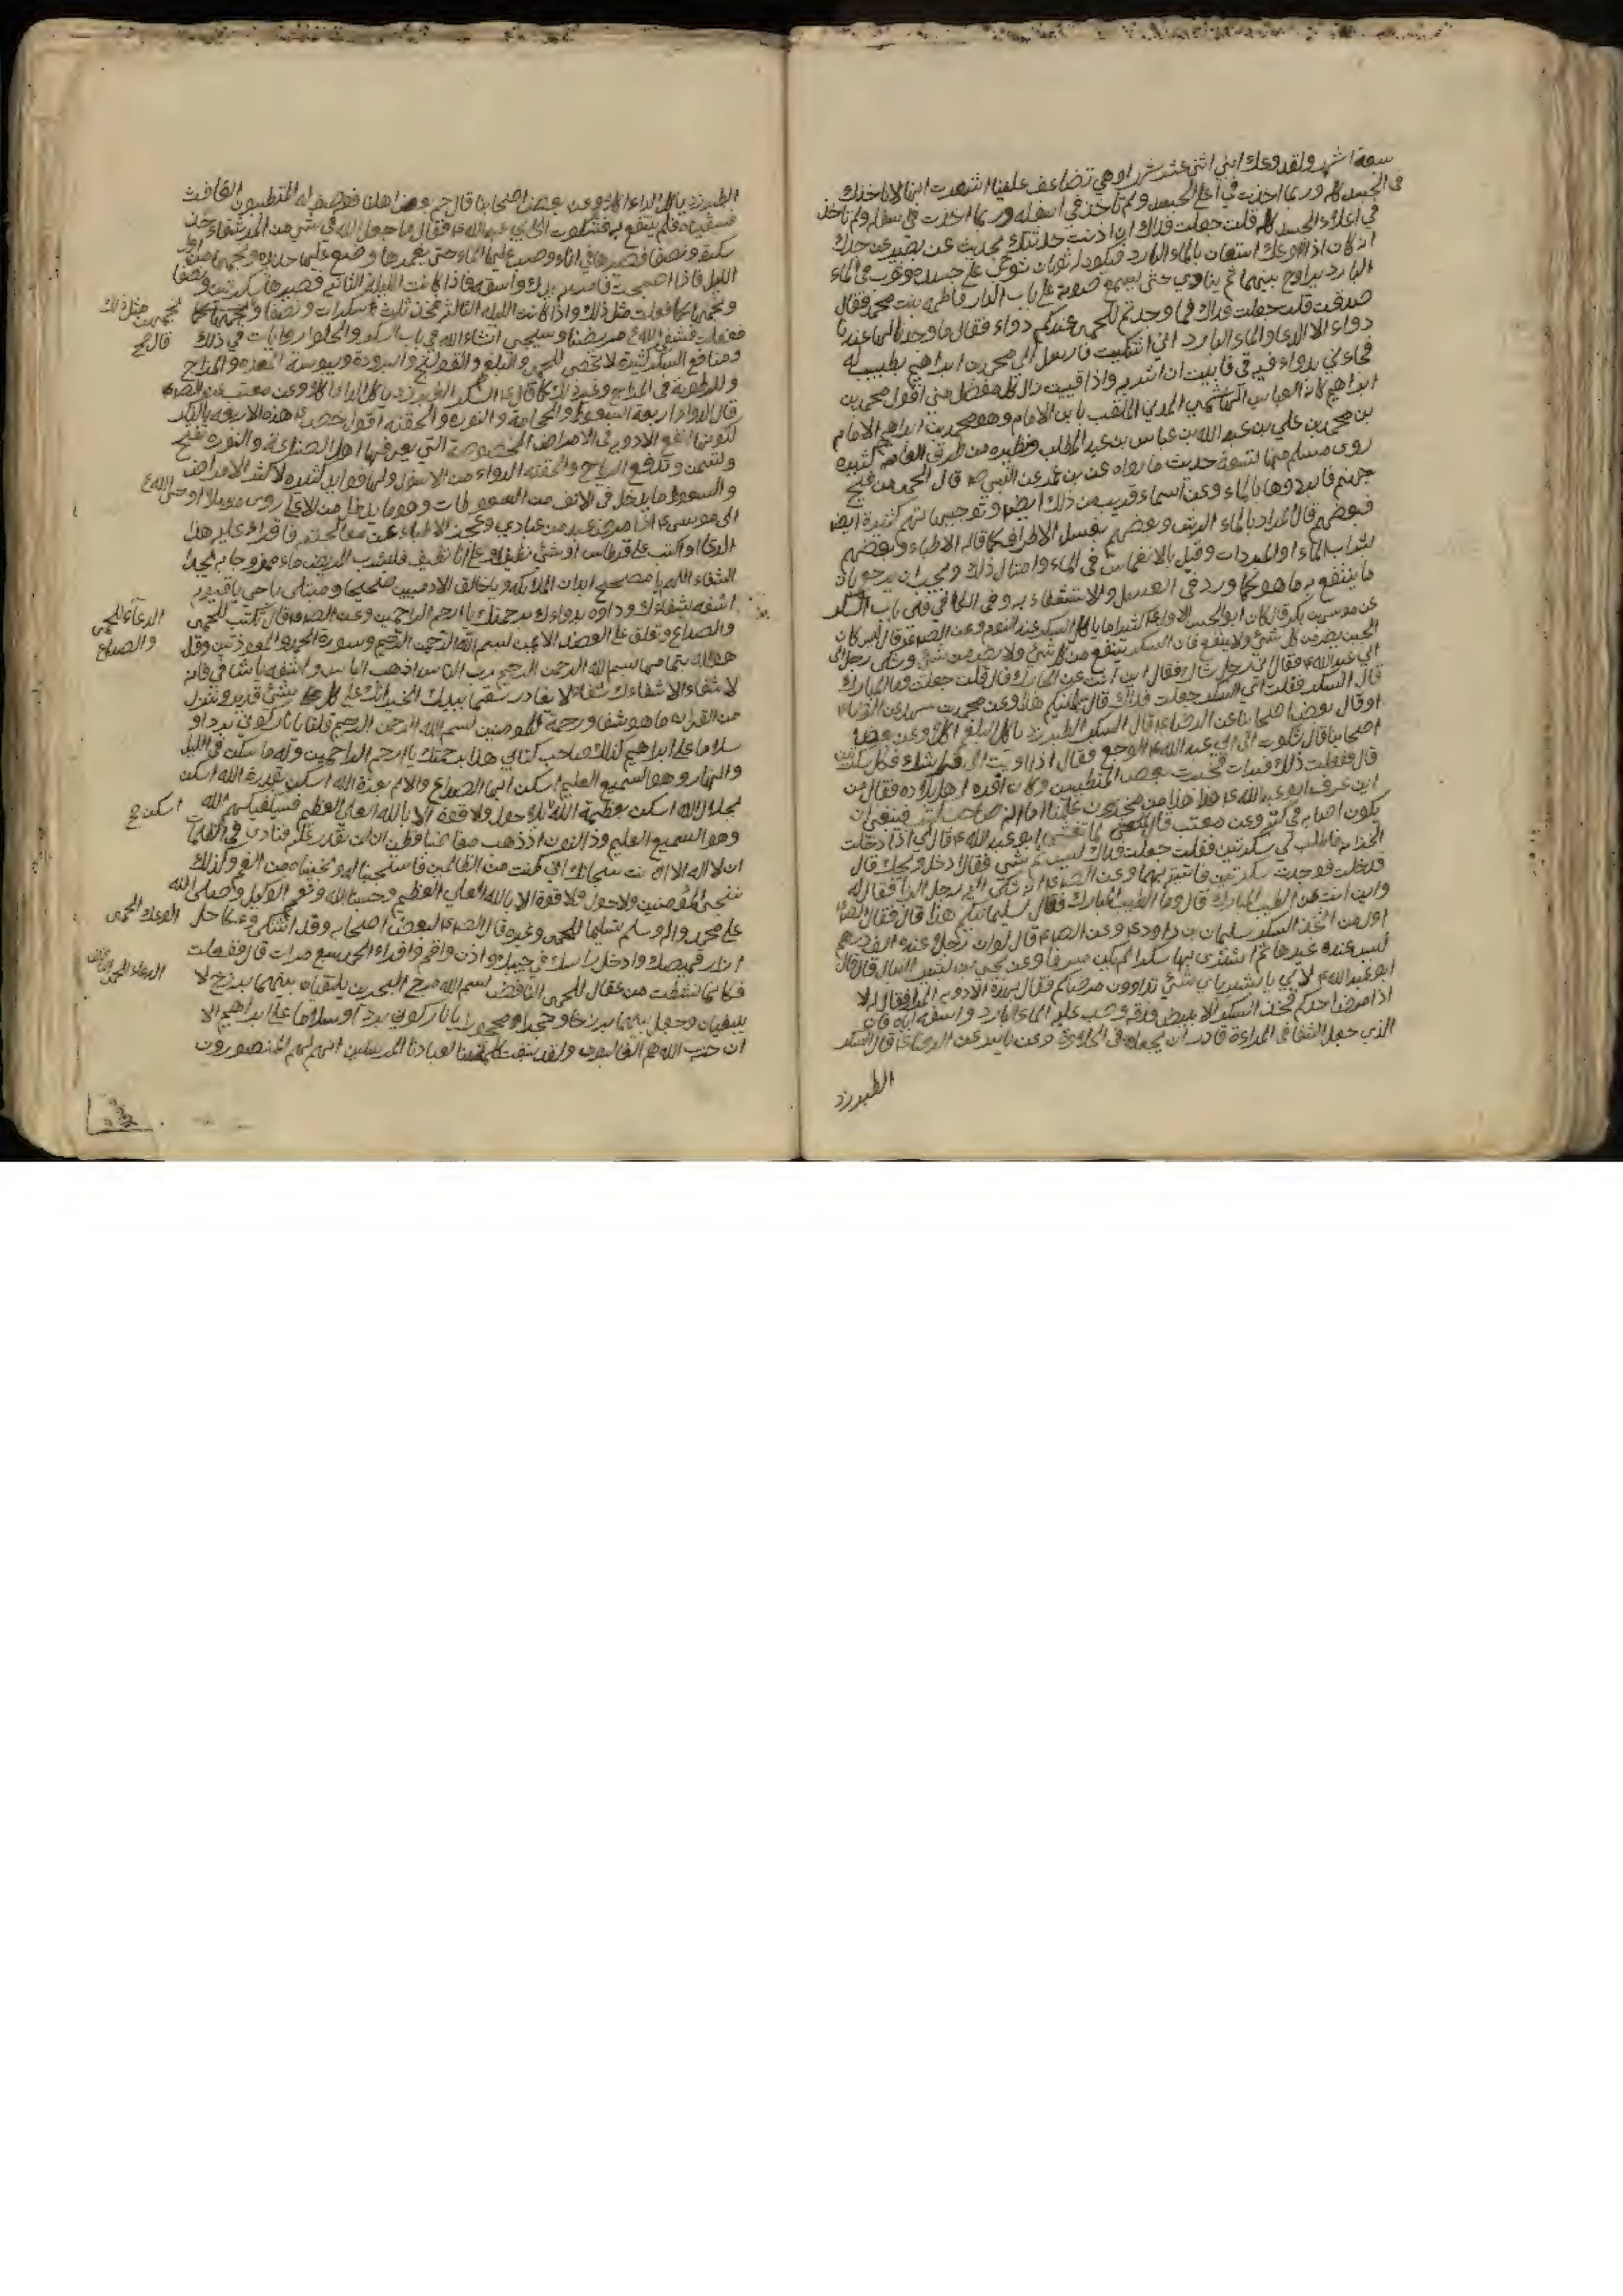 سبعة اشهر ولقد وعك ابني اثنى عشر شهرا وهي تضاعف علينا اشعرت انها لا تاخذك
في الجسد كله وربما اخذت في اعلى الجسد ولم تاخذ في اسفله وربما اخذت في اسفله ولم تاخذ
في اعلاء الجسد كله قلت جعلت فداك ان اذنت حدثتك بحديث عن ابي بصير عن جدك
انه كان اذا وعك استعان بالماء البارد فيكون له ثوبان ثوب في الماء
البارد وثوب على جسده يراوح بينهما ثم ينادي حتى يسمع صوته على باب الدار فاطمة بنت محمد فقال
صدقت قلت جعلت فداك فما وجدتم للحمى عندكم دواء فقال ما وجدنا لها عندنا
دواء الا الدعا والماء البارد اني اشتكيت فارسل الي محمد بن ابراهيم بطبيب له
فجاءني بدواء فيه قي فابيت ان اشربه لاني اذا قييت زال كل مفصل مني اقول محمد بن
ابراهيم كان العباس الهاشمي المدني الملقب بابن الامام وهو محمد بن ابراهيم الامام
بن محمد بن علي بن عبد الله بن عباس بن عبد المطلب ونظيره من طرق العامة كثيرة
روى مسلم منها تسعة حديث ما رواه عن بن عمر عن النبي ص قال الحمى من فيح
جهنم فابردوها بالماء وعن اسماء قريب من ذلك ايضا وتوجيهاتهم كثيرة ايض
فبعضهم قال المراد بالماء الريق وبعضهم بغسل الاطراف كما قاله الاطباء وبعضهم
بشراب الماء او المبردات وقيل بالانغماس في الماء وامثال ذلك ويجب ان يرجو بان
ما ينتفع به ما هو كما ورد في العسل والاستشفاء به وفي الكافي في باب السكر
عن موسى بن بكر قال كان ابو الحسن الاول ع كثيرا ما ياكل السكر عند النوم وعن الص ع قال لئن كان
الجبن يضر من كل شئ ولا ينفع فان السكر ينفع من كل شئ ولا يضر من شئ وشكى رجل الى
ابي عبد الله ع فقال اني رجل شاك فقال اين انت عن المبارك قال قلت جعلت وما المبارك
قال السكر فقلت اي السكر جعلت فداك قال سليمانيكم هذا وعن محمد بن
او قال بعض اصحابنا عن الرضا ع قال السكر الطبرزد ياكل البلغم اكلا وعن بعض
اصحابنا قال شكوت الى ابي عبد الله ع الوجع فقال اذا اويت الى فراشك فكل سكرتين
قال ففعلت ذلك فبرات فخبرت بعض المتطببين وكان افره اهل بلاده فقال من
اين عرف ابو عبد الله ع هذا هذا من مخزون علمنا اما انه صاحب كتب فينبغي ان
يكون اصابه في كتبه وعن معتب قال لما تعشى ابو عبد الله ع قال لي اذا دخلت
الخزانة فاطلب لي سكرتين فقلت جعلت فداك ليس ثم شئ فقال ادخل ويحك قال
فدخلت فوجدت سكرتين فاتيته بهما وعن الص ع انه شكى اليه رجل الوبا فقال له
واين انت عن الطيب المبارك قال وما الطيب المبارك فقال سليمانيكم هذا قال فقال ان
اول من اتخذ السكر سليمان بن داود ع وعن الص ع قال لو ان رجلا عنده الف درهم
ليس عنده غيرها ثم اشترى بها سكرا لم يكن مسرفا وعن يحيى بن بشير النبال قال قال
ابو عبد الله ع لابي يا بشير باي شئ تداوون مرضاكم فقال بهذه الادوية المرار فقال له لا
اذا مرض احدكم فخذ السكر الابيض فدقه وصب عليه الماء البارد واسقه اياه فان
الذي جعل الشفا في المرارة قادر ان يجعله في الحلاوة وعن ياسر عن الرضا ع قال السكر
الطبرزد
الطبرزد ياكل الداء اكلا وعن بعض اصحابنا قال حم بعض اهلنا فوصف له المتطببون الغافث
فسقيناه فلم ينتفع به فشكوت الى ابي عبد الله ع فقال ما جعل الله في شئ من المر شفاء خذ
سكرة ونصفا فصيرها في اناء وصب عليها الماء حتى يغمرها وضع عليها حديدة ونجمها من اول
الليل فاذا اصبحت فامرسها بيدك واسقه فاذا كانت الليلة الثانية فصيرها سكرتين ونصفا
ونجمها كما فعلت مثل ذلك واذا كانت الليلة الثالثة فخذ ثلث سكرات ونصفا ونجمهن
نجمهن مثل ذلك
قال
ففعلت فشفى الله ع مريضنا وسيجئ انشاء الله في باب السكر والحلوا روايات في ذلك
ومنافع السكر كثيرة لا تحصى للحمى والبلغم والقولنج والبرودة ويبوسة المعدة والمزاج
وللرطوبة في المزاج وغير ذلك كما قال ع السكر الطبرزد ياكل الداء اكلا وعن معتب عن الص ع
قال الدواء اربعة السعوط والحجامة والنورة والحقنة اقول خصص ع هذه الاربعة بالذكر
لكونها انفع الادوية في الامراض المخصوصة التي يعرفها اهل الصناعة والنورة تفتح
وتسمن وتدفع الرياح والحقنة الدواء من الاسفل ولها فوايد كثيرة لاكثر الامراض
والسعوط ما يدخل في الانف من السعوطات وهو ما يدخل من الاعلى روى مرسلا اوحى الله ع
الى موسى ع اذا مرض عبد من عبادي وعجز الاطباء عن معالجته فاقراء عليه هذا
الدعا او اكتب على قرطاس او شئ نظيف او على انا نظيف فليشرب المريض ماءه ممزوجا به يجد
الشفاء اللهم يا مصحح ابدان الملائكة ويا خالق الادميين صحيحا ومبتلى يا حي يا قيوم
اشفه بشفائك وداوه بدوائك برحمتك يا ارحم الراحمين وعن الص ع قال تكتب للحمى
الدعاء للحمى
والصداع
والصداع وتعلق على العضد الايمن بسم الله الرحمن الرحيم وسورة الحمد والمعوذتين وقل
هو الله بتمامها بسم الله الرحمن الرحيم رب الناس اذهب الباس واشفه يا شافي فانه
لا شفاء الا شفاءك شفاء لا يغادر سقما بيدك الخير انك على كل شئ قدير وننزل
من القران ما هو شفا ورحمة للمومنين بسم الله الرحمن الرحيم قلنا يا نار كوني بردا و
سلاما على ابراهيم كذلك صاحب كتابي هذا برحمتك يا ارحم الراحمين وله ما سكن في الليل
والنهار وهو السميع العليم اسكن ايها الصداع والالم بعزة الله اسكن بقدرة الله اسكن
بجلال الله اسكن بعظمة الله بلا حول ولا قوة الا بالله العلي العظيم فسيكفيكهم الله
اسكن
وهو السميع العليم وذا النون اذ ذهب مغاضبا فظن ان لن نقدر عليه فنادى في الظلمات
ان لا اله الا انت سبحانك اني كنت من الظالمين فاستجبنا له ونجيناه من الغم وكذلك
ننجي المؤمنين ولا حول ولا قوة الا بالله العلي العظيم وحسبنا الله ونعم الوكيل وصلى الله
على محمد واله وسلم تسليما للحمى وغيره قال الص ع لبعض اصحابه وقد اشتكى وعكا حل
الوعك الحمى
ازرار قميصك وادخل راسك في جيبك واذن واقم واقراء الحمد سبع مرات قال ففعلت
فكانما نشطت من عقال للحمى النافض بسم الله مرج البحرين يلتقيان بينهما برزخ لا
يبغيان وجعل بينهما برزخا وحجرا محجورا يا نار كوني بردا وسلاما على ابراهيم الا
ان حزب الله هم الغالبون ولقد سبقت كلمتنا لعبادنا المرسلين انهم لهم المنصورون